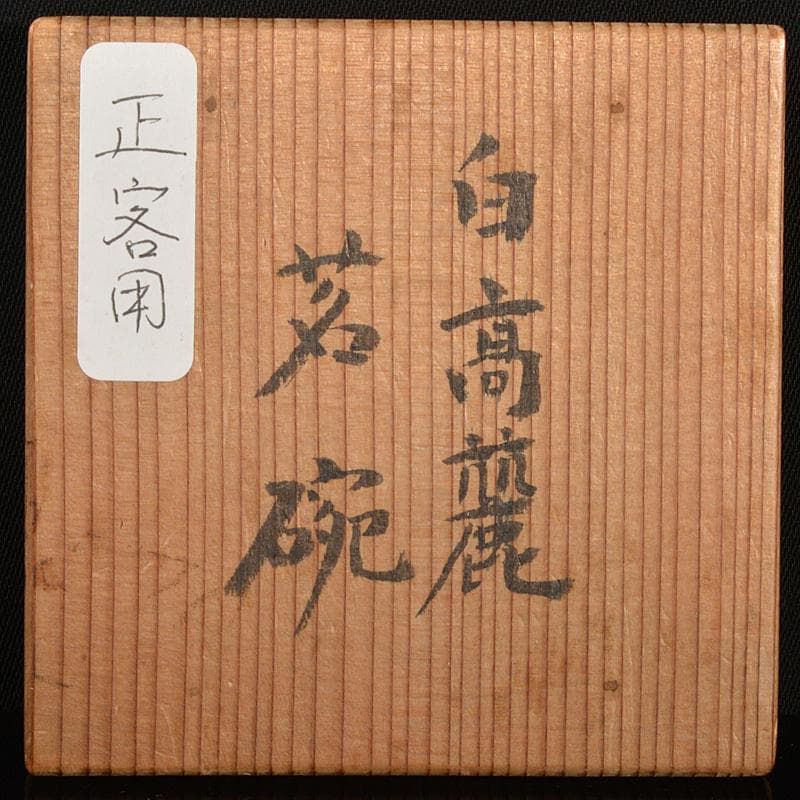 白高麗
茗碗
正客用